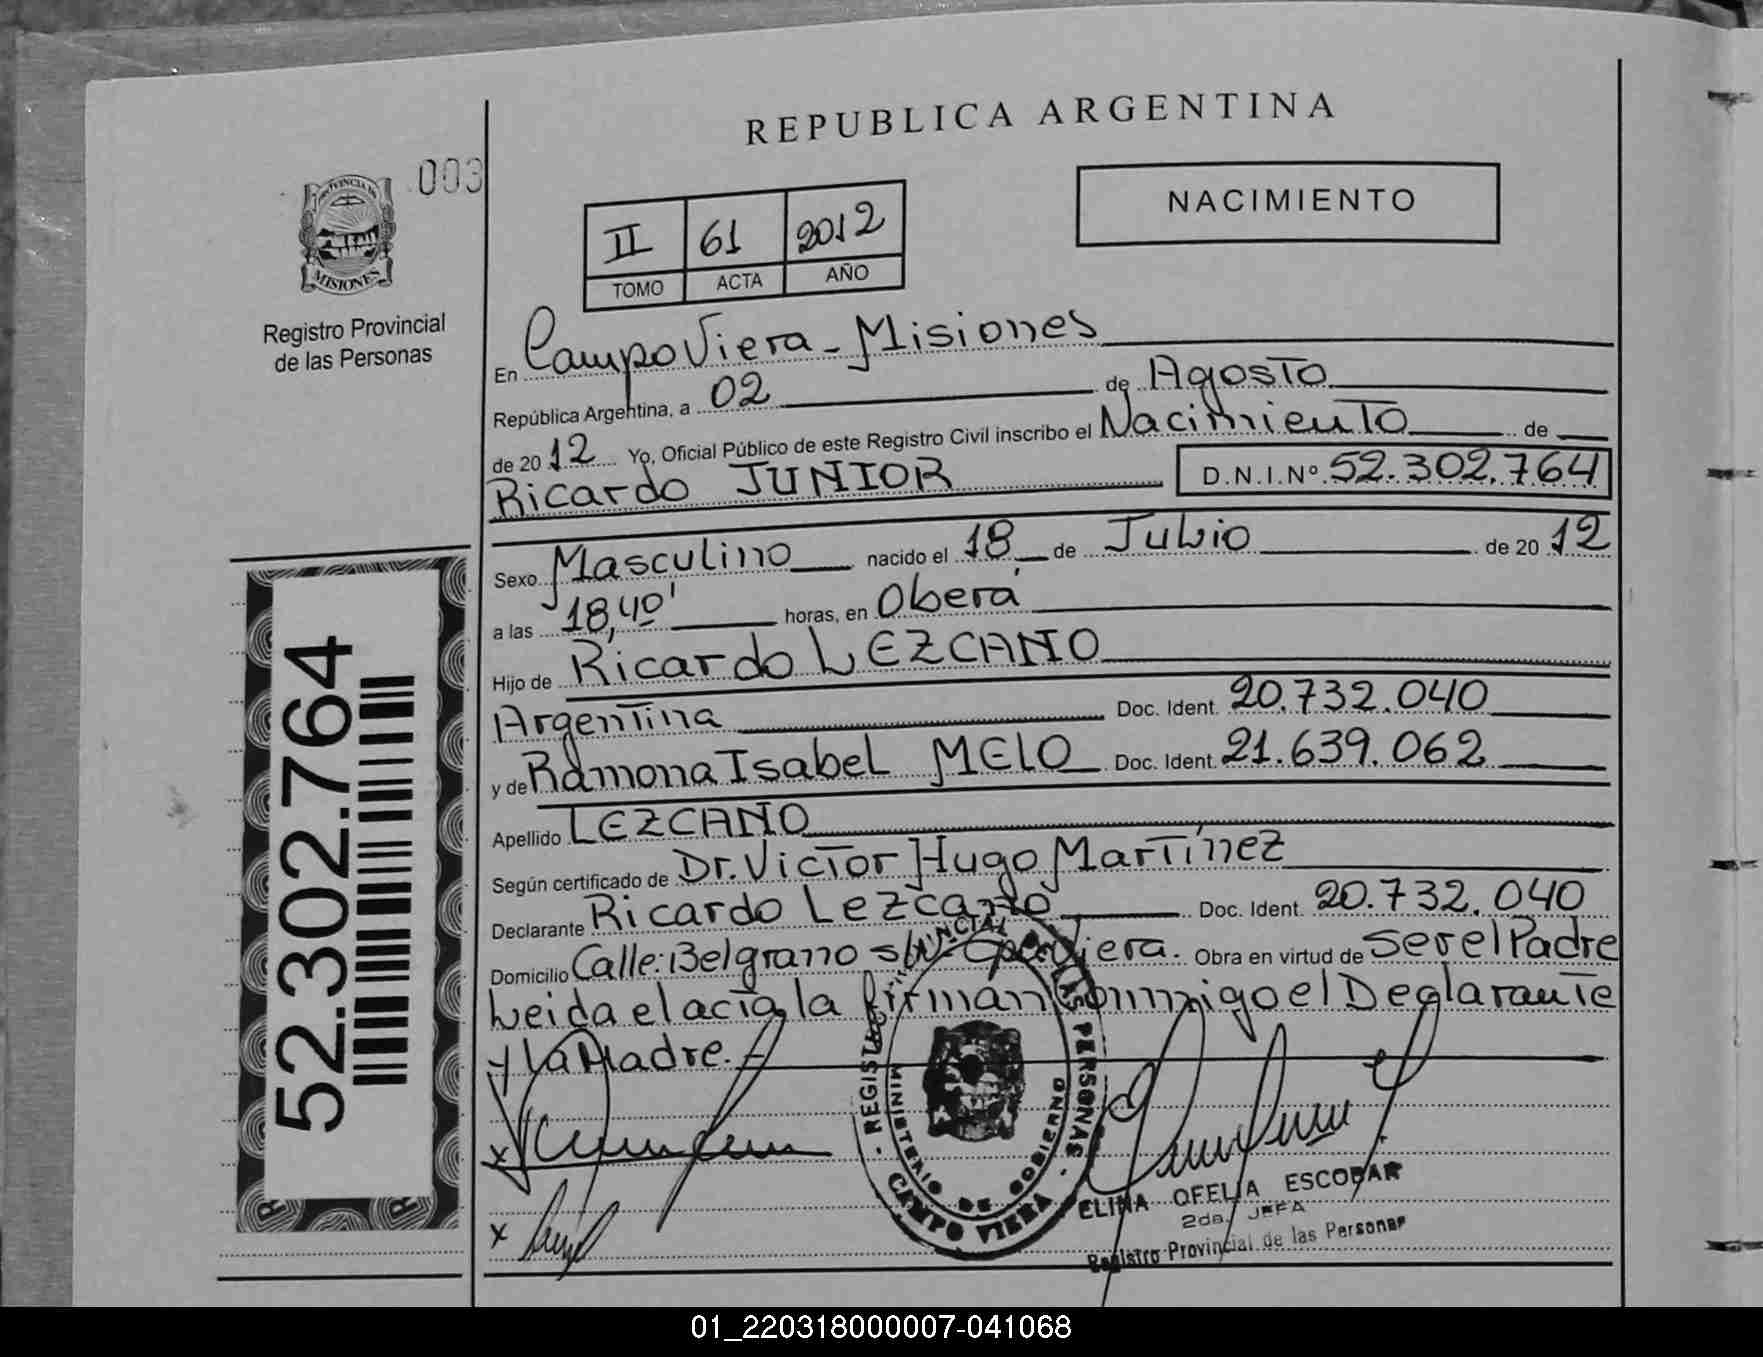 REPUBLICA ARGENTINA
003
PROVINCIA DE
MISIONES
Registro Provincial
de las Personas
NACIMIENTO
II 61 2012
TOMO ACTA AÑO
En Campo Viera - Misiones
República Argentina, a 02 de Agosto
de 2012 Yo, Oficial Público de este Registro Civil inscribo el Nacimiento de
Ricardo JUNIOR D.N.I.Nº 52.302.764
Sexo Masculino nacido el 18 de Julio de 2012
a las 18,40' horas, en Oberá
Hijo de Ricardo LEZCANO
Argentina Doc. Ident. 20.732.040
y de Ramona Isabel MELO Doc. Ident. 21.639.062
Apellido LEZCANO
Según certificado de Dr. Victor Hugo Martínez
Declarante Ricardo Lezcano Doc. Ident. 20.732.040
Domicilio Calle: Belgrano s/Nº Cpo Viera. Obra en virtud de Ser el Padre
Leida el acta, la firman conmigo el Declarante
y la Madre.-
52.302.764
x
x
REGISTRO PROVINCIAL DE LAS PERSONAS
MINISTERIO DE GOBIERNO
CAMPO VIERA
ELINA OFELIA ESCOBAR
2da. JEFA
Registro Provincial de las Personas
01_220318000007-041068